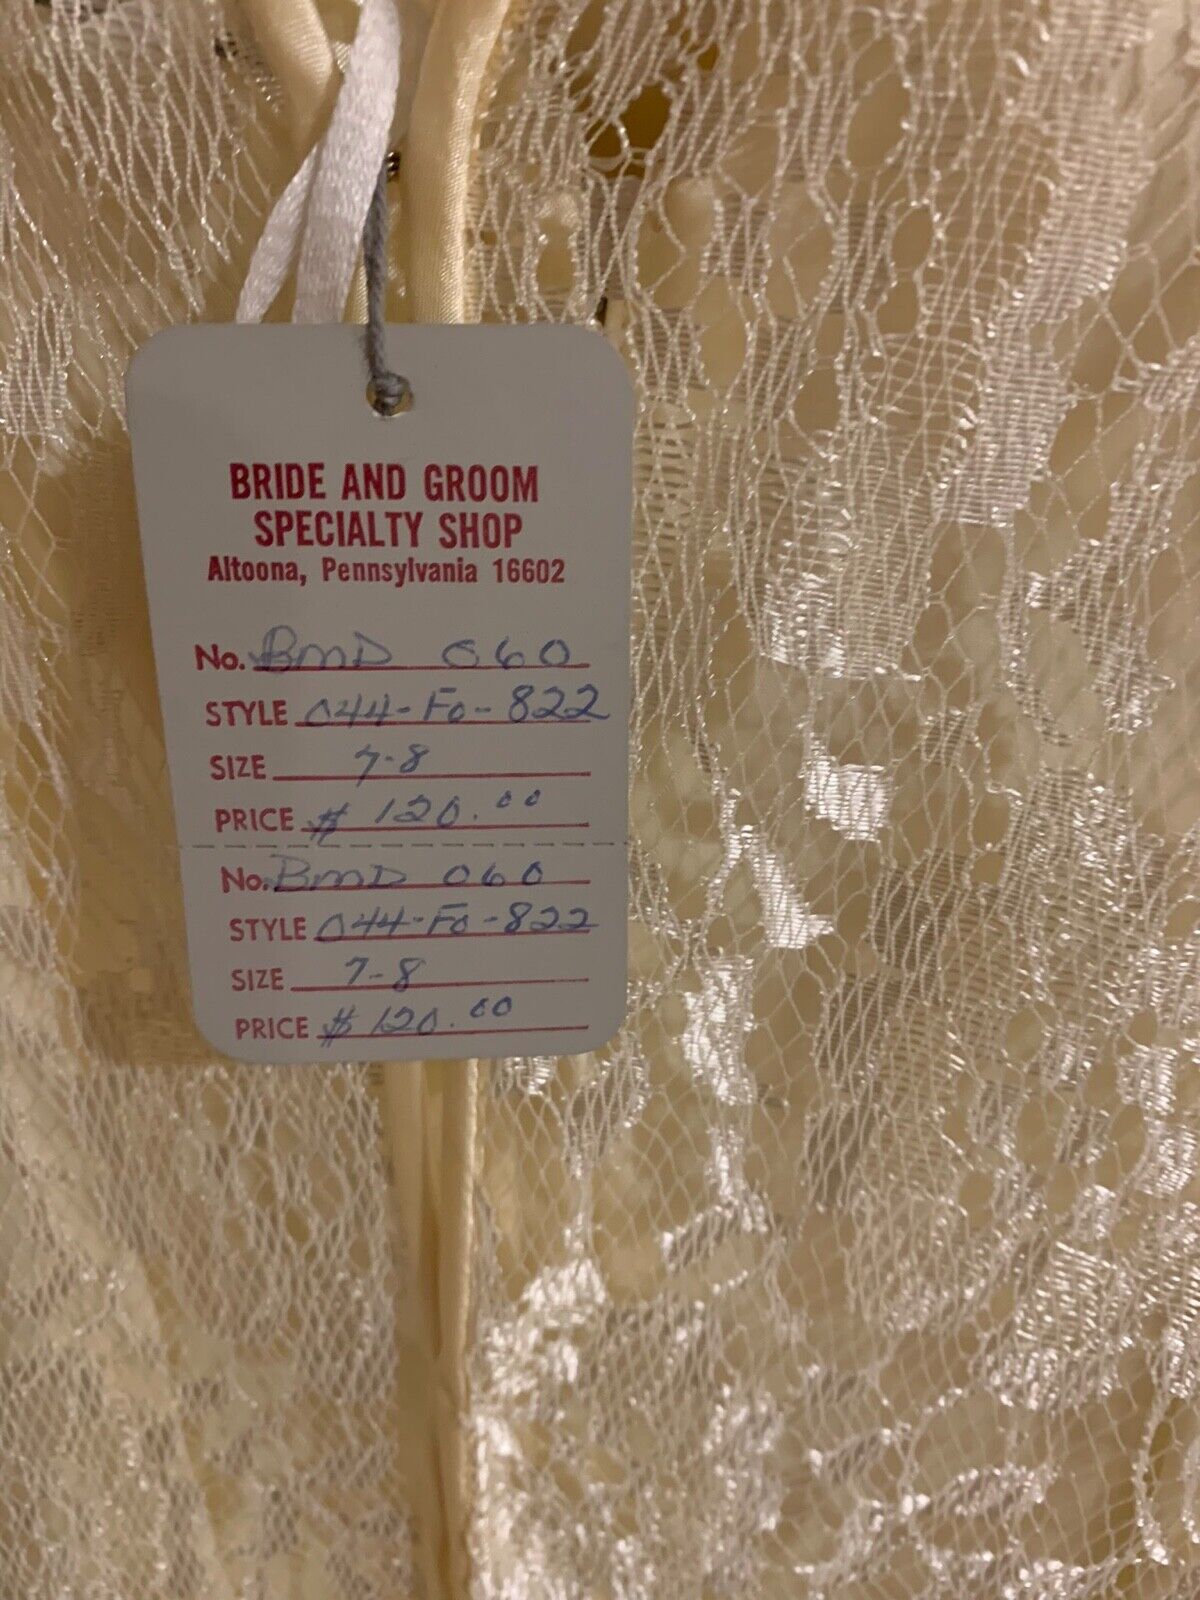 BRIDE AND GROOM
SPECIALTY SHOP
Altoona, Pennsylvania 16602
No. BMD 060
STYLE 044-Fo-822
SIZE 7-8
PRICE $ 120.00
No. BMD 060
STYLE 044-Fo-822
SIZE 7-8
PRICE $ 120.00